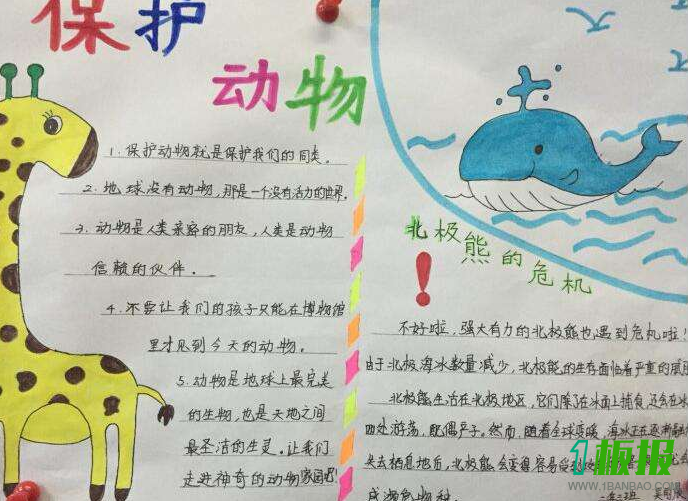 保护
动物
1. 保护动物就是保护我们的同类。
2. 地球没有动物，那是一个没有活力的世界。
3. 动物是人类亲密的朋友，人类是动物
信赖的伙伴。
4. 不要让我们的孩子只能在博物馆
里才见到今天的动物。
5. 动物是地球上最完美
的生物，也是天地之间
最圣洁的生灵。让我们
走进神奇的动物家园吧
北极熊的危机
！
不好啦，强大有力的北极熊也遇到危机啦！
由于北极海冰数量减少，北极熊的生存面临着严重的威胁
北极熊生活在北极地区，它们除了在冰面上捕食，还会在冰
四处游荡，配偶产子。然而，随着全球变暖，海冰在逐渐融
失去栖息地后，北极熊会变得容易受
成濒危物种。
1板报
WWW.1BANBAO.COM